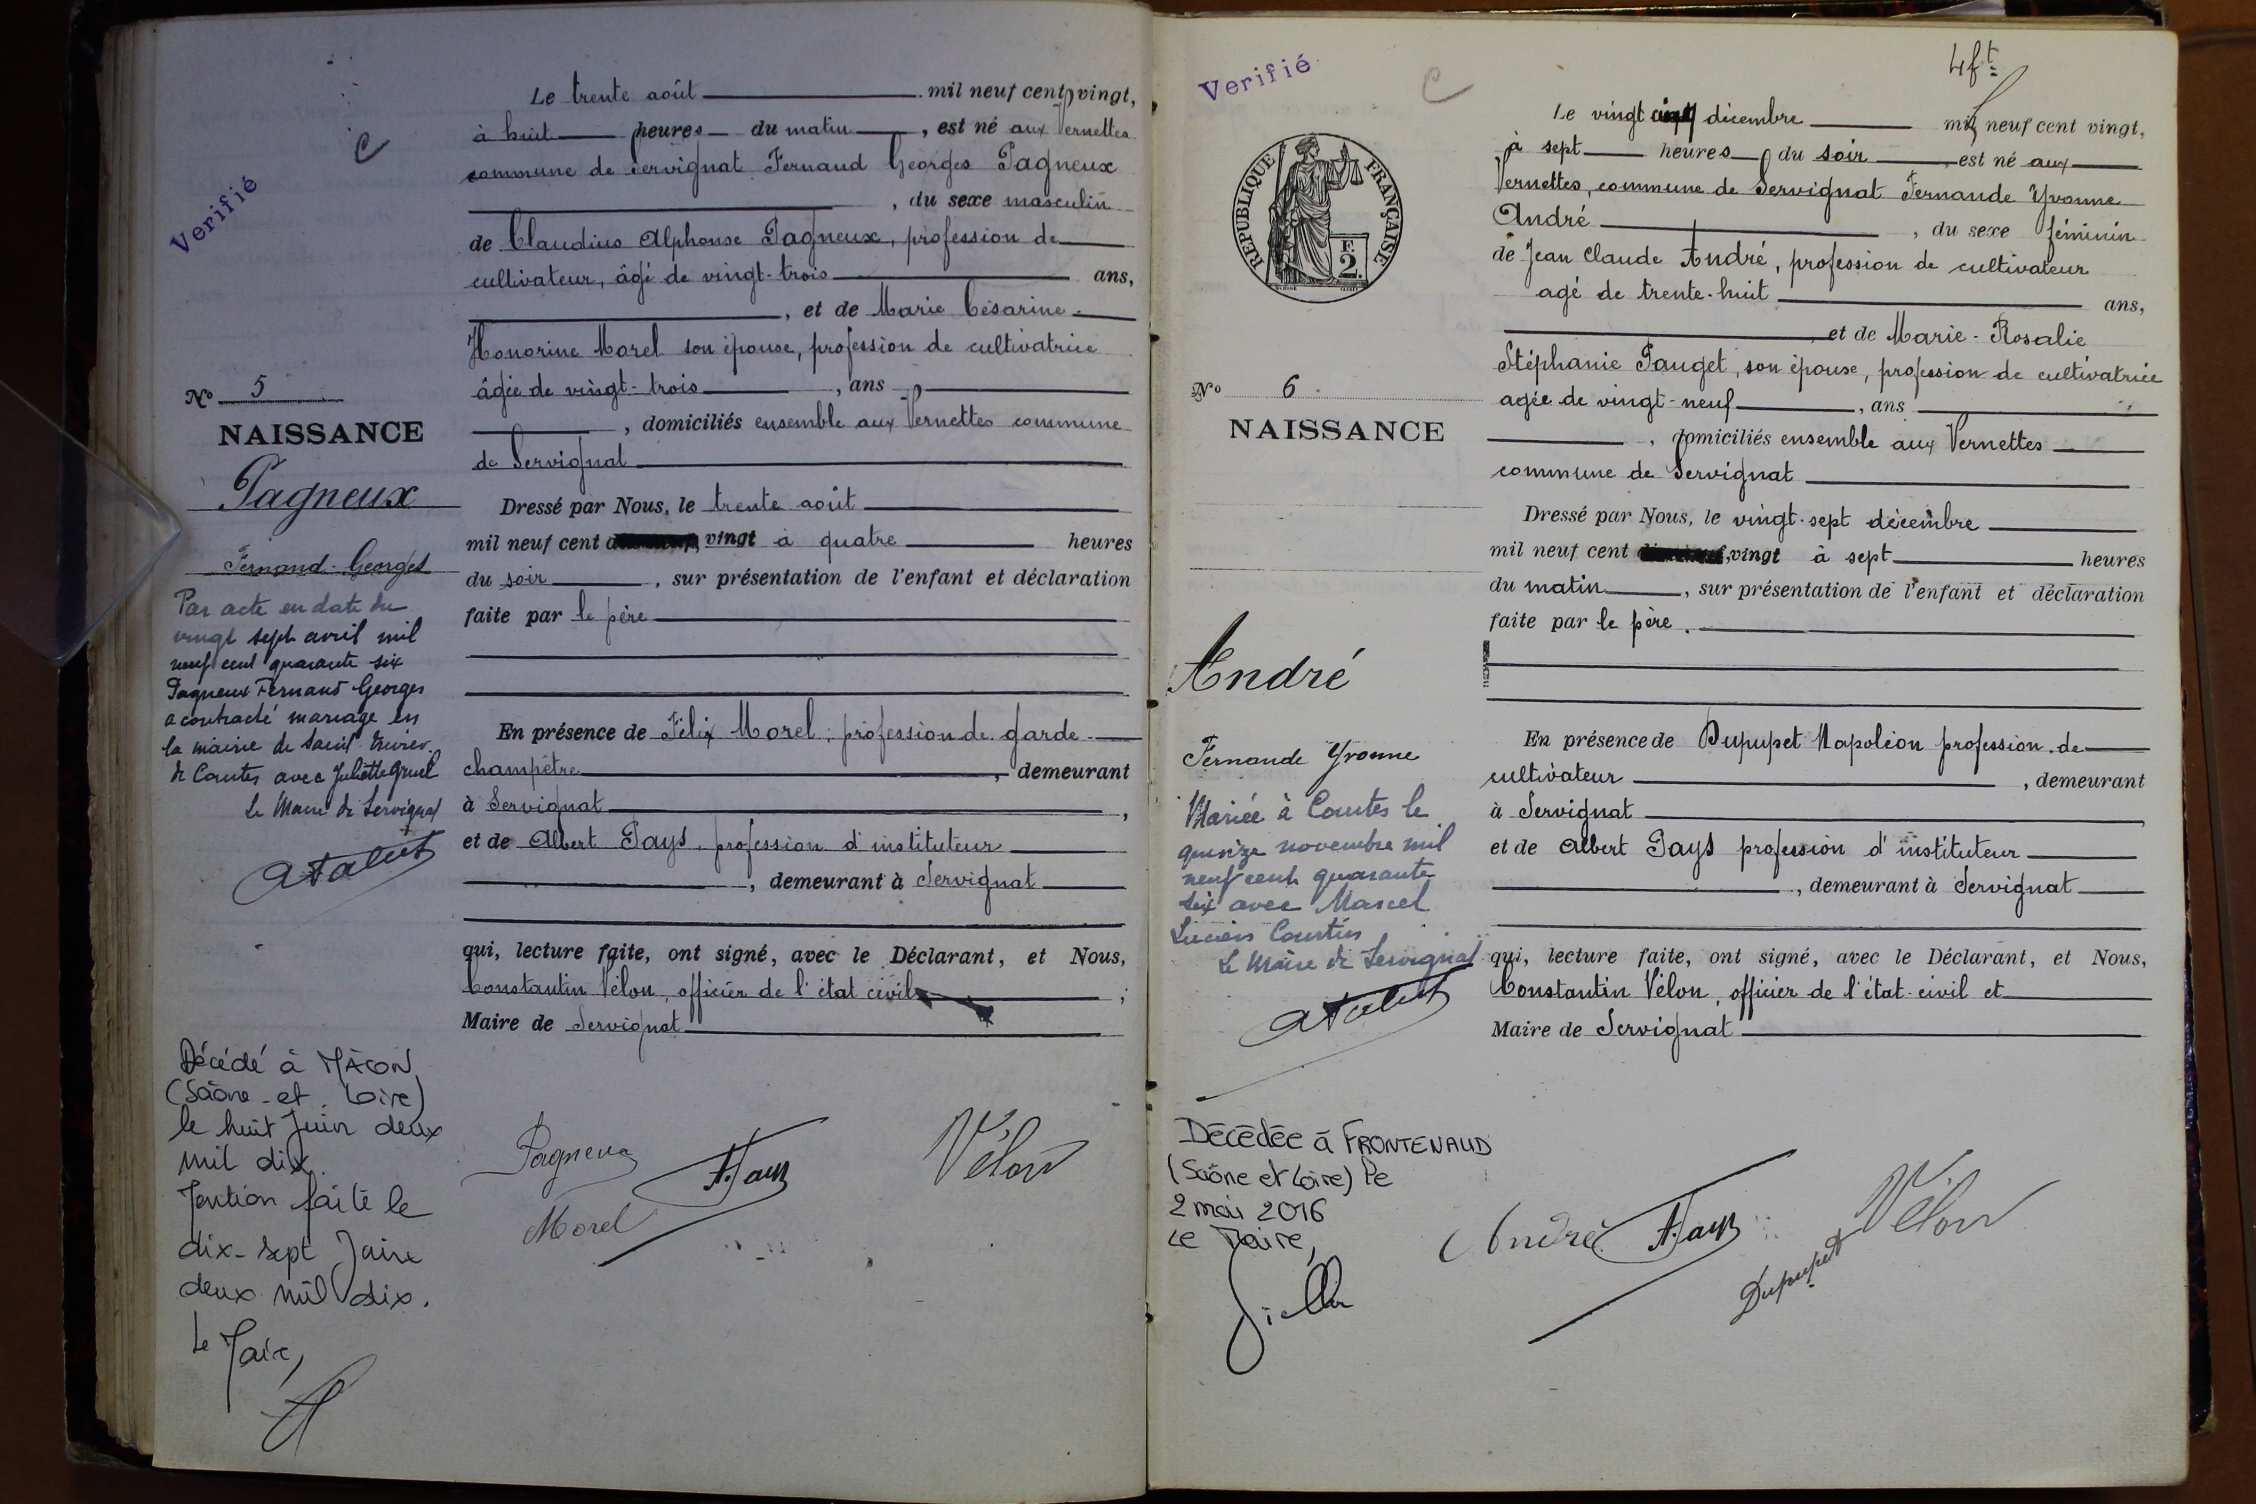 Verifié
C
Le trente août mil neuf cent vingt,
à huit heures du matin, est né aux Vernettes
commune de Servignat Fernand Georges Pagneux
, du sexe masculin
de Claudius Alphonse Pagneux, profession de
cultivateur, âgé de vingt-trois ans,
, et de Marie Césarine
Honorine Morel son épouse, profession de cultivatrice
âgée de vingt-trois, ans
, domiciliés ensemble aux Vernettes commune
de Servignat
Dressé par Nous, le trente août
mil neuf cent vingt à quatre heures
du soir, sur présentation de l'enfant et déclaration
faite par le père
En présence de Félix Morel, profession de garde-
champêtre, demeurant
à Servignat,
et de Albert Pays, profession d'instituteur
, demeurant à Servignat
qui, lecture faite, ont signé, avec le Déclarant, et Nous,
Constantin Vélon, officier de l'état civil
Maire de Servignat
Pagneux
Morel
A. Pays
Vélon
No 5
NAISSANCE
Pagneux
Fernand-Georges
Par acte en date du
vingt sept avril mil
neuf cent quarante six
Pagneux Fernand Georges
a contracté mariage en
la mairie de Saint Trivier
de Courtes avec Juliette Gruel
Le Maire de Servignat
Décédé à MÂCON
(Saône-et-Loire)
le huit Juin deux
mil dix.
Mention faite le
dix-sept Juin
deux mil dix.
Le Maire,
Verifié
C
REPUBLIQUE FRANÇAISE
F.
2.
4 ft
Le vingt cinq décembre mil neuf cent vingt,
à sept heures du soir est né aux
Vernettes, commune de Servignat Fernande Yvonne
André, du sexe féminin
de Jean Claude André, profession de cultivateur
agé de trente-huit ans,
et de Marie-Rosalie
Stéphanie Pauget, son épouse, profession de cultivatrice
agée de vingt-neuf, ans
, domiciliés ensemble aux Vernettes
commune de Servignat
Dressé par Nous, le vingt-sept décembre
mil neuf cent vingt à sept heures
du matin, sur présentation de l'enfant et déclaration
faite par le père.
En présence de Dupupet Napoléon profession de
cultivateur, demeurant
à Servignat
et de Albert Pays profession d'instituteur
, demeurant à Servignat
qui, lecture faite, ont signé, avec le Déclarant, et Nous,
Constantin Vélon, officier de l'état-civil et
Maire de Servignat
André
A. Pays
Dupupet
Vélon
No 6
NAISSANCE
André
Fernande Yvonne
Mariée à Courtes le
quinze novembre mil
neuf cent quarante
six avec Marcel
Lucien Courtin
Le Maire de Servignat
Décédée à FRONTENAUD
(Saône et Loire) le
2 mai 2016
Le Maire,